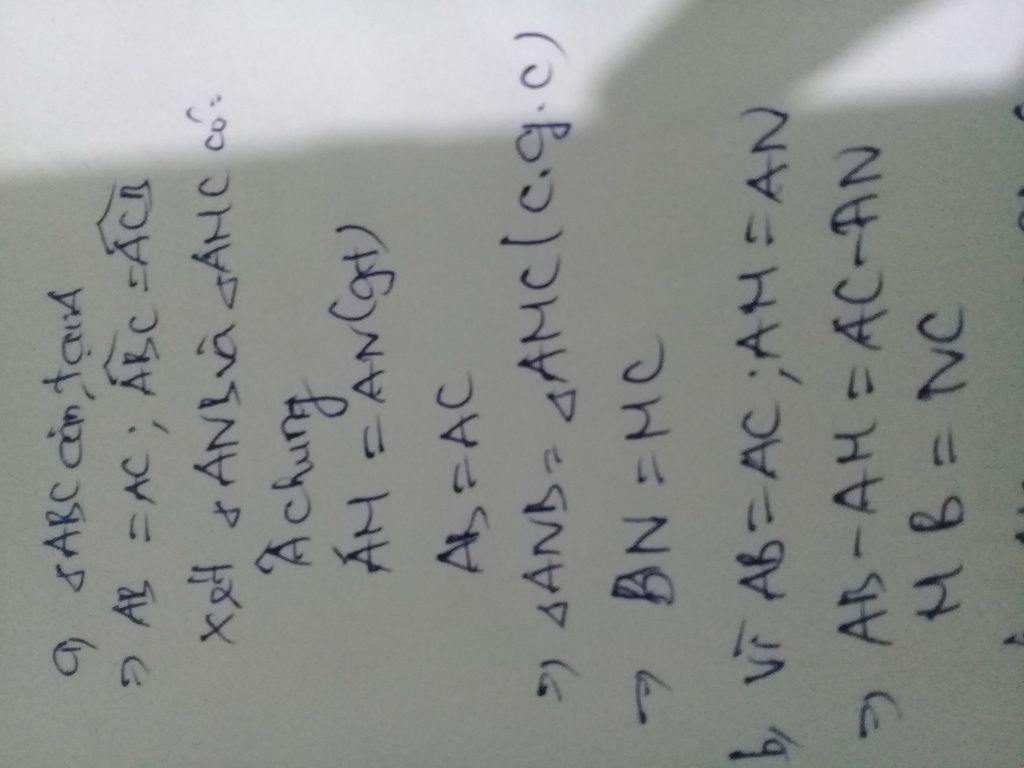 a) △ABC cân tại A
=> AB = AC ; ABC = ACB
Xét △ANB và △AMC có:
Â chung
AM = AN (gt)
AB = AC
=> △ANB = △AMC ( c.g.c)
=> BN = MC
b, Vì AB = AC ; AM = AN
=> AB - AM = AC - AN
MB = NC